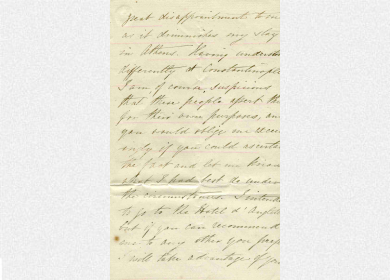 great disappointment to me
as it diminishes my stay
in Athens. Having understo
differently at Constantinople
I am of course suspicious
that these people assert th
for their own purposes, an
you would oblige me excee
ingly if you could ascerta
the fact and let me know
what I had best do under
the circumstances. I intend
to go to the Hotel d'Anglet
but if you can recommend
me to any other you prefe
I will take advantage of you